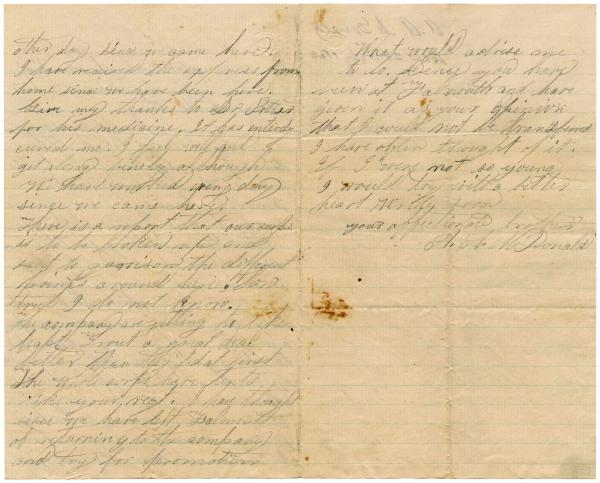 other day since we came here.
I have received the express from
home since we have been here.
Give my thanks to Dr Potter
for his medicine. It has entirely
cured me. I feel well and
get along finely although
We have worked every day
since we came here.
There is a report that our corps
is to be broken up and
sent to garrison the different
points around here. How
true I do not know.
The company are getting to like
Capt a great deal
better than they did at first
The whole corps have tents
like your regt. I have thought
since we have left Falmouth
of returning to the company
and try for promotion
What would advise me
to do. Since you have
been at Falmouth and have
given it as your opinion
that I could not be transfered
I have often thought of it.
If I were not so young
I would try with a better
heart Write soon
your affectionate brother
McDonald